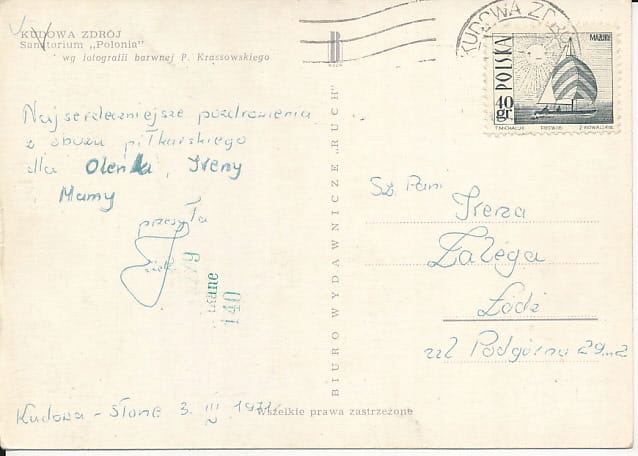 KUDOWA ZDRÓJ
Sanatorium „Polonia"
wg fotografii barwnej P. Krassowskiego
Najserdeczniejsze pozdrowienia
z obozu piłkarskiego
dla Oleńka, Ireny
Mamy
przesyła
140
Kudowa - Słone 3. III 1971
Wszelkie prawa zastrzeżone
BIURO WYDAWNICZE „RUCH"
RUCH
KUDOWA ZDRÓJ
POLSKA
40 gr
MAZURY
T. MICHALUK
Z. KOWALSKI
Sz. Pani
Irena
Załęga
Łódź
ul Podgórna 29 m 2